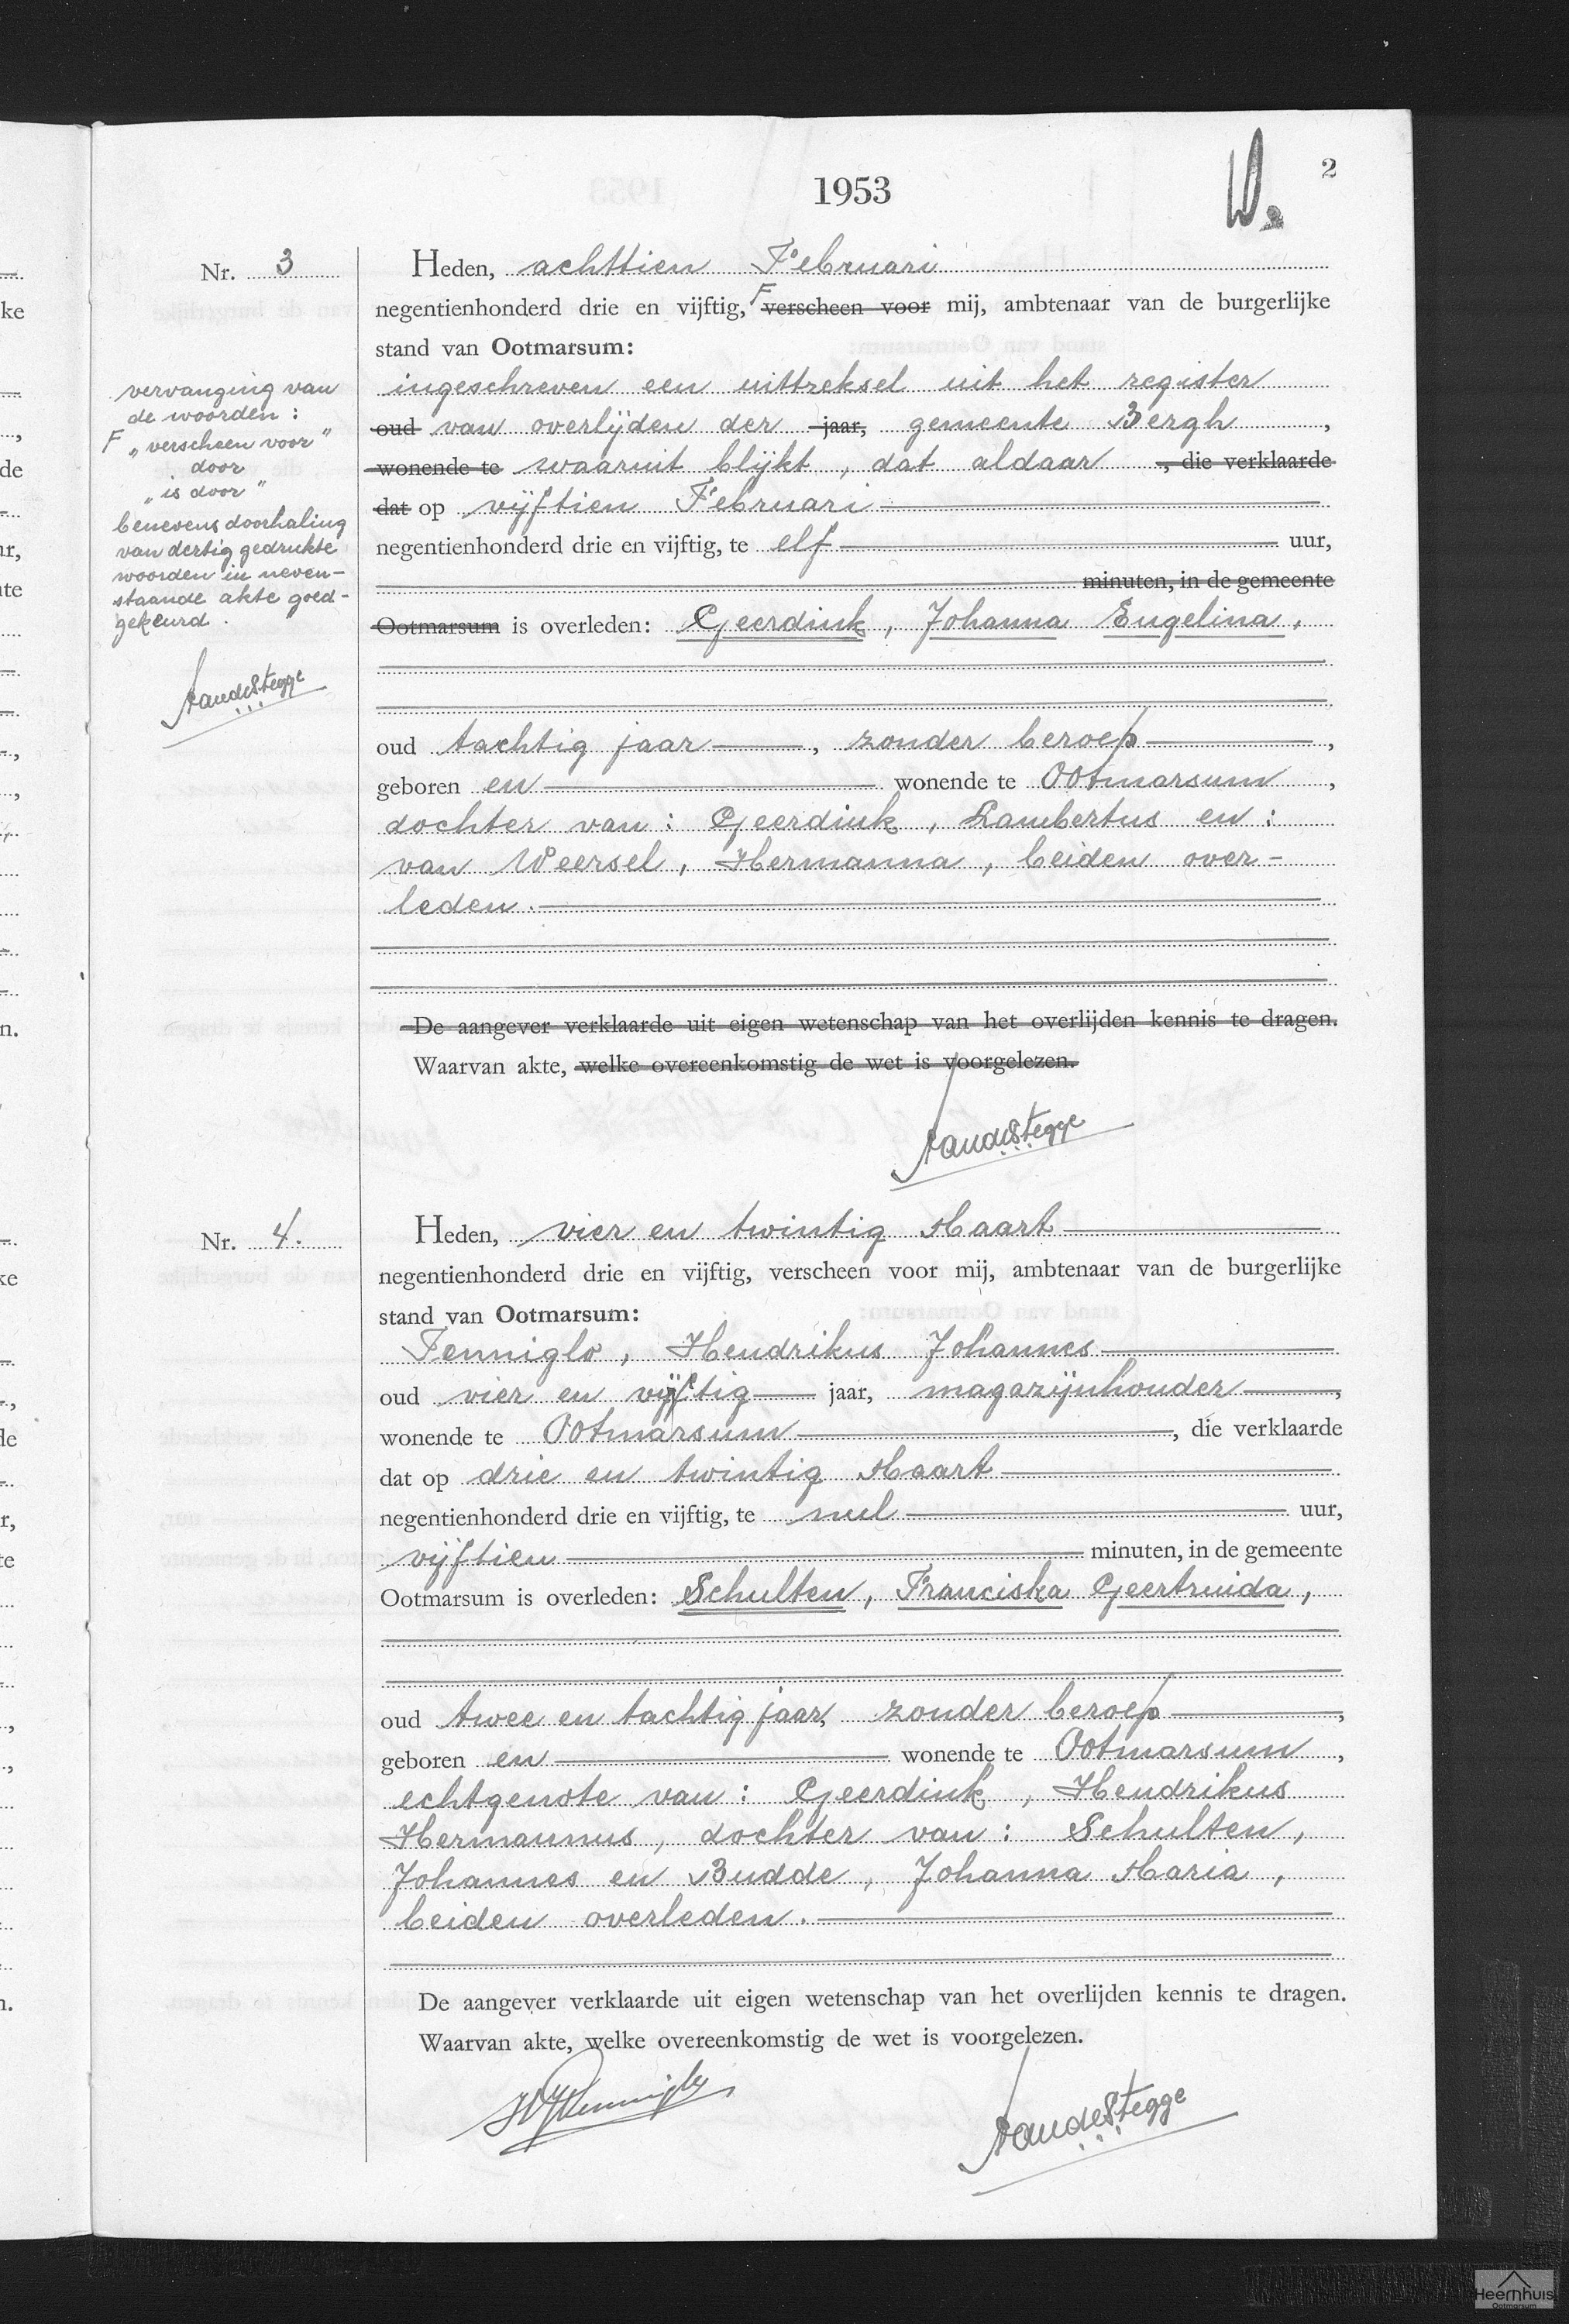 1953
2
Nr. 3
Heden, achttien Februari
negentienhonderd drie en vijftig, F verscheen voor mij, ambtenaar van de burgerlijke
stand van Ootmarsum:
ingeschreven een uittreksel uit het register
oud van overlijden der jaar, gemeente Bergh,
wonende te waaruit blijkt, dat aldaar, die verklaarde
dat op vijftien Februari
negentienhonderd drie en vijftig, te elf uur,
minuten, in de gemeente
Ootmarsum is overleden: Geerdink, Johanna Engelina,
oud tachtig jaar, zonder beroep,
geboren en wonende te Ootmarsum,
dochter van: Geerdink, Lambertus en:
van Weersel, Hermanna, beiden over-
leden.
De aangever verklaarde uit eigen wetenschap van het overlijden kennis te dragen.
Waarvan akte, welke overeenkomstig de wet is voorgelezen.
vervanging van
de woorden:
F "verscheen voor"
door
"is door"
benevens doorhaling
van dertig gedrukte
woorden in neven-
staande akte goed-
gekeurd.
Nr. 4.
Heden, vier en twintig Maart
negentienhonderd drie en vijftig, verscheen voor mij, ambtenaar van de burgerlijke
stand van Ootmarsum:
Tenniglo, Hendrikus Johannes
oud vier en vijftig jaar, magazijnhouder,
wonende te Ootmarsum, die verklaarde
dat op drie en twintig Maart
negentienhonderd drie en vijftig, te nul uur,
vijftien minuten, in de gemeente
Ootmarsum is overleden: Schulten, Franciska Geertruida,
oud twee en tachtig jaar, zonder beroep,
geboren en wonende te Ootmarsum,
echtgenote van: Geerdink, Hendrikus
Hermannus, dochter van: Schulten,
Johannes en Budde, Johanna Maria,
beiden overleden.
De aangever verklaarde uit eigen wetenschap van het overlijden kennis te dragen.
Waarvan akte, welke overeenkomstig de wet is voorgelezen.
Heemhuis
Ootmarsum